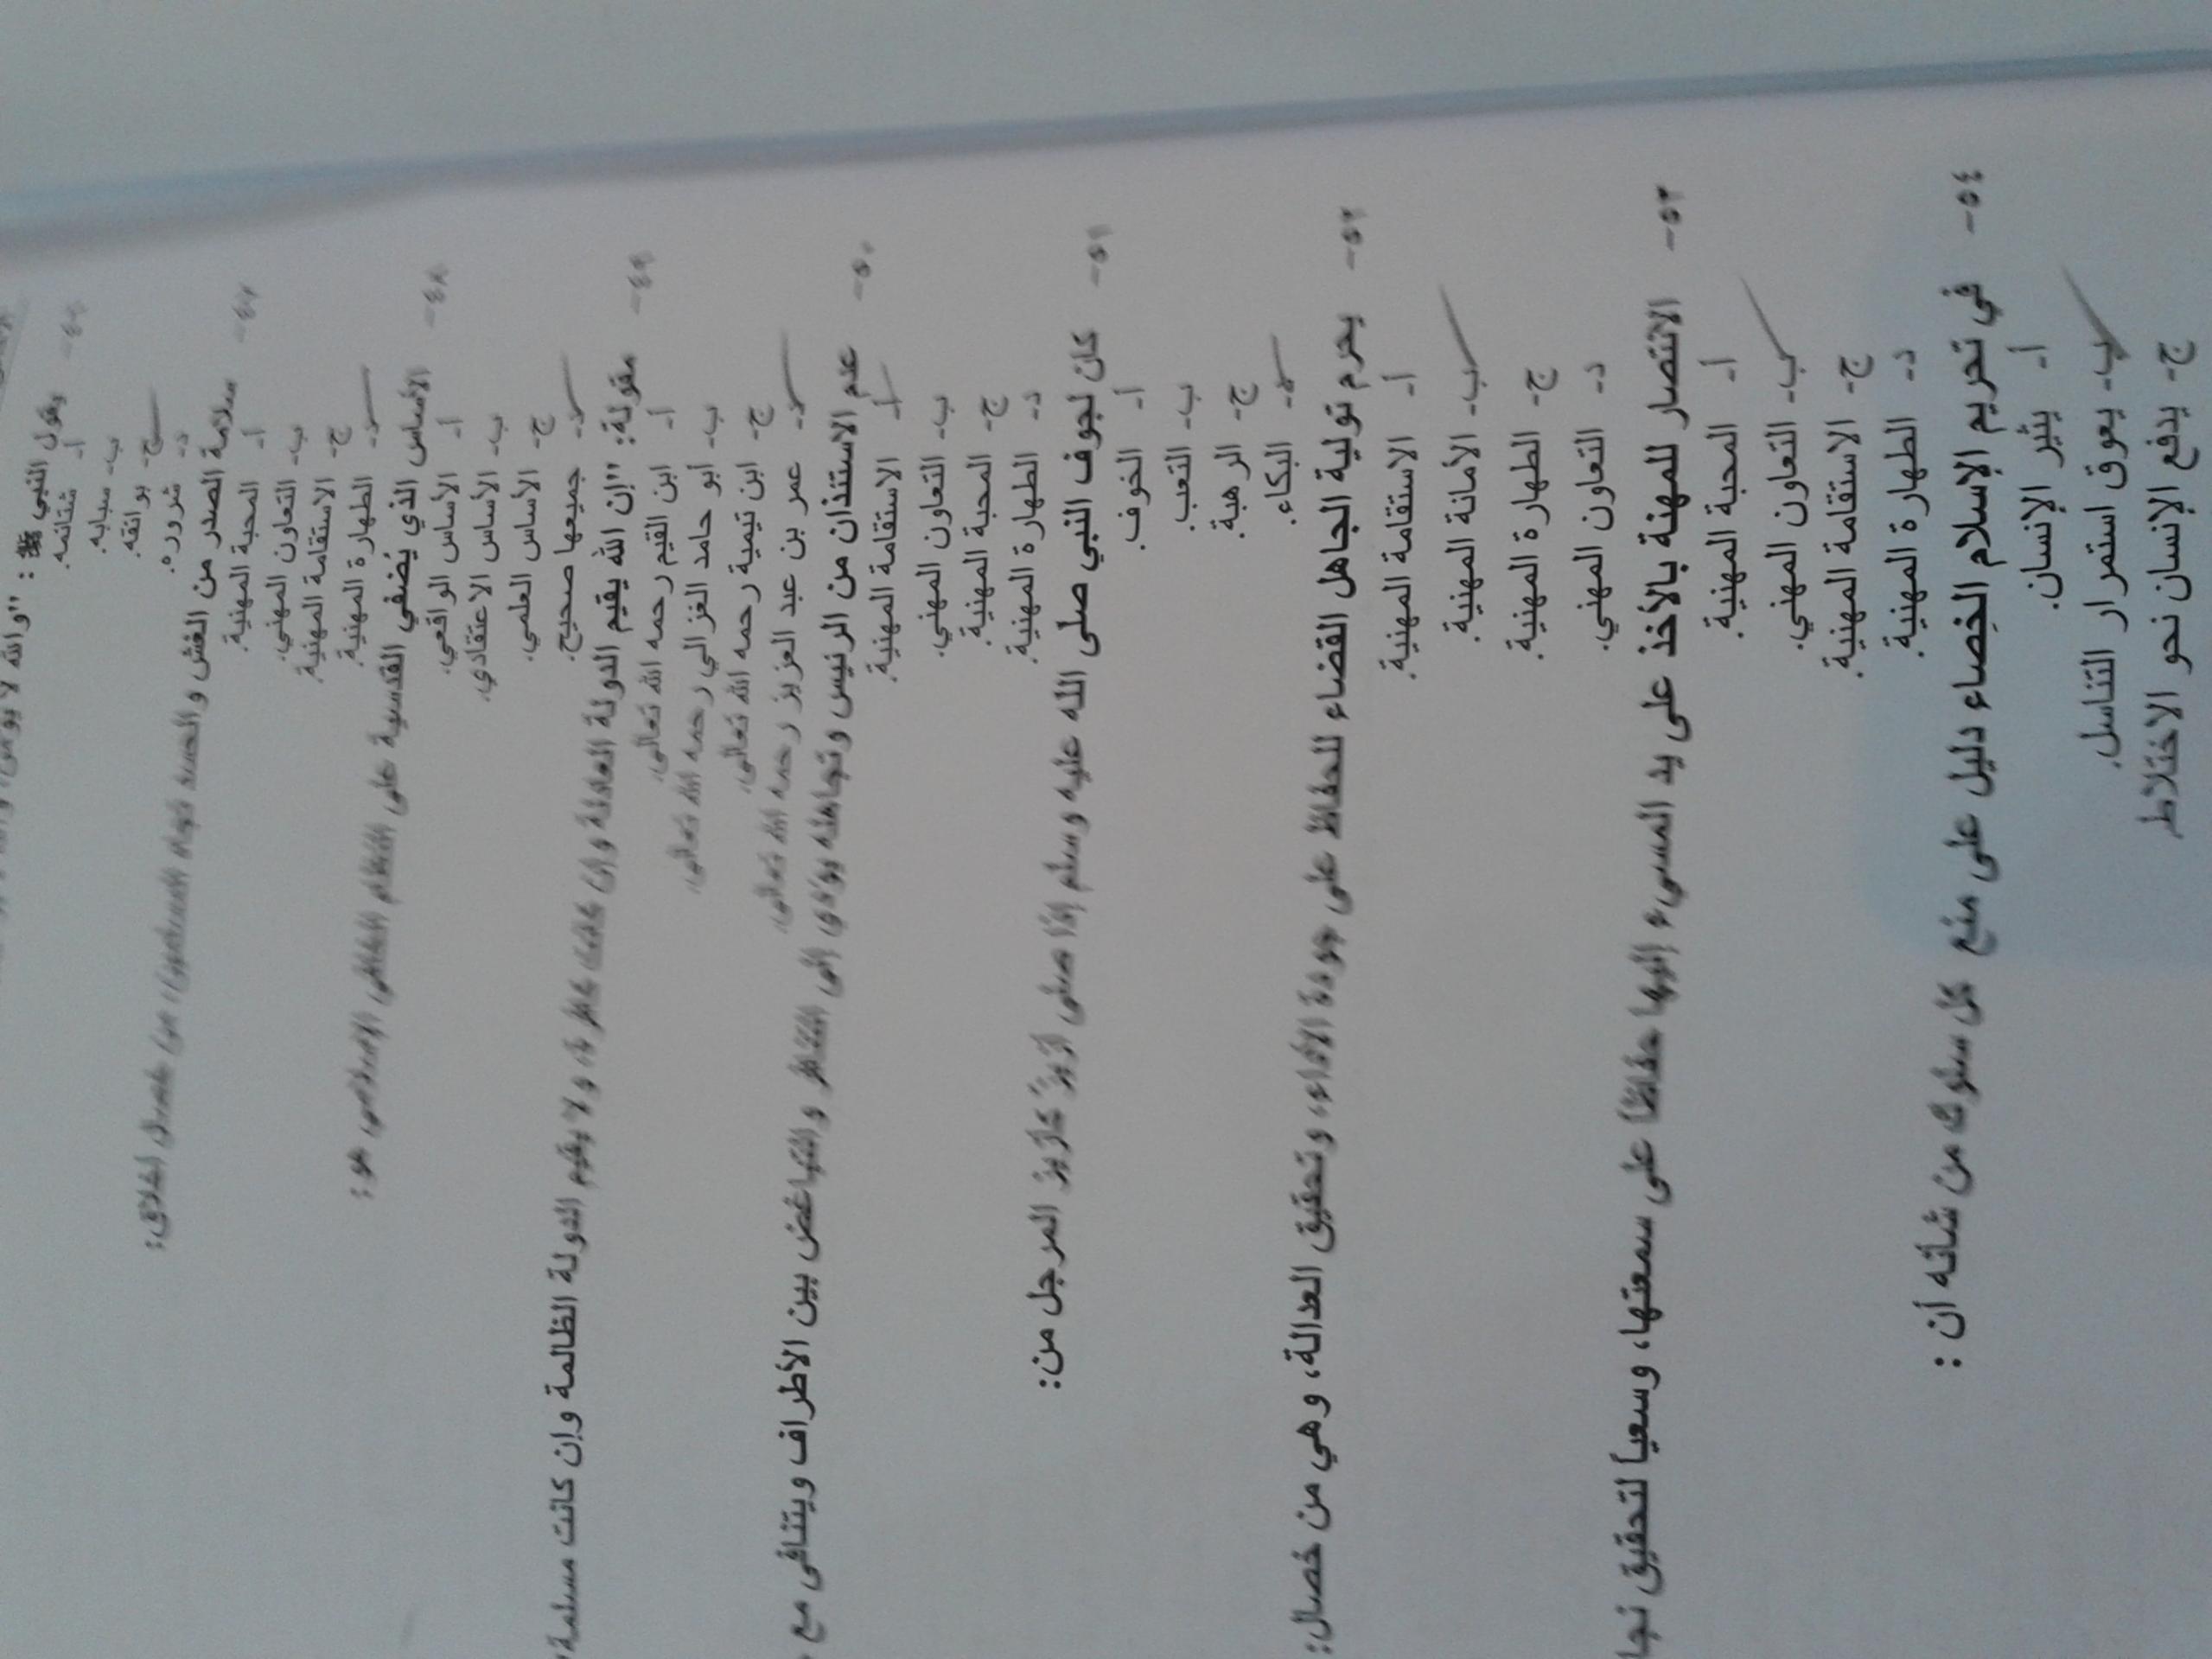 ٤٦- يقول النبي ﷺ : "والله لا يؤمن،
أ- شتائمه.
ب- سبابه.
ج- بوائقه.
د- شروره.
٤٧- سلامة الصدر من الغش والحسد تجاه المسلمين؛ من خصال أخلاق:
أ- المحبة المهنية.
ب- التعاون المهني.
ج- الاستقامة المهنية.
د- الطهارة المهنية.
٤٨- الأساس الذي يُضفي القدسية على النظام الخلقي الإسلامي هو:
أ- الأساس الواقعي.
ب- الأساس الاعتقادي.
ج- الأساس العلمي.
د- جميعها صحيح.
٤٩- مقولة: "إن الله يقيم الدولة العادلة وإن كانت كافرة، ولا يقيم الدولة الظالمة وإن كانت مسلمة"
أ- ابن القيم رحمه الله تعالى.
ب- أبو حامد الغزالي رحمه الله تعالى.
ج- ابن تيمية رحمه الله تعالى.
د- عمر بن عبد العزيز رحمه الله تعالى.
٥٠- عدم الاستئذان من الرئيس وتجاهله يؤدي إلى التناحر والتباغض بين الأطراف ويتنافى مع
أ- الاستقامة المهنية.
ب- التعاون المهني.
ج- المحبة المهنية.
د- الطهارة المهنية.
٥١- كان لجوف النبي صلى الله عليه وسلم إذا صلى أزيزٌ كأزيز المرجل من:
أ- الخوف.
ب- التعب.
ج- الرهبة.
د- البكاء.
٥٢- يحرم تولية الجاهل القضاء للحفاظ على جودة الأداء، وتحقيق العدالة، وهي من خصال:
أ- الاستقامة المهنية.
ب- الأمانة المهنية.
ج- الطهارة المهنية.
د- التعاون المهني.
٥٣- الانتصار للمهنة بالأخذ على يد المسيء إليها حفاظاً على سمعتها، وسعياً لتحقيق نجا
أ- المحبة المهنية.
ب- التعاون المهني.
ج- الاستقامة المهنية.
د- الطهارة المهنية.
٥٤- في تحريم الإسلام الخِصاء دليل على منع كل سلوك من شأنه أن :
أ- يثير الإنسان.
ب- يعوق استمرار التناسل.
ج- يدفع الإنسان نحو الاختلاط